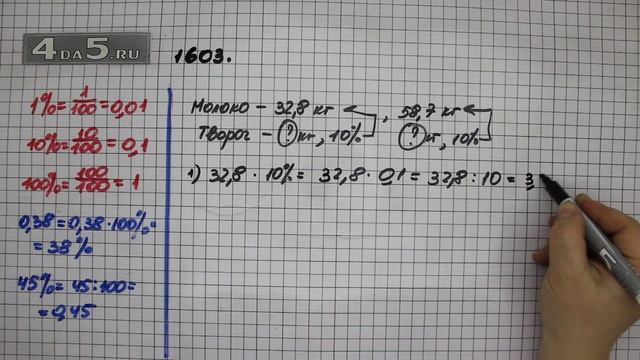 4DA5.RU
1603.
1% = 1/100 = 0,01
10% = 10/100 = 0,1
100% = 100/100 = 1
0,38 = 0,38 · 100% =
= 38%
45% = 45 : 100 =
= 0,45
Молоко – 32,8 кг , 58,7 кг
Творог – ? кг, 10% ? кг, 10%
1) 32,8 · 10% = 32,8 · 0,1 = 32,8 : 10 = 3